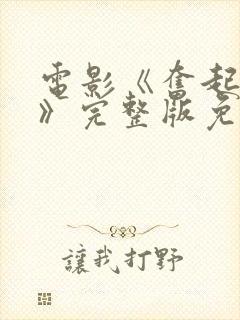 電影《奮起
》完整版免
讓我打野